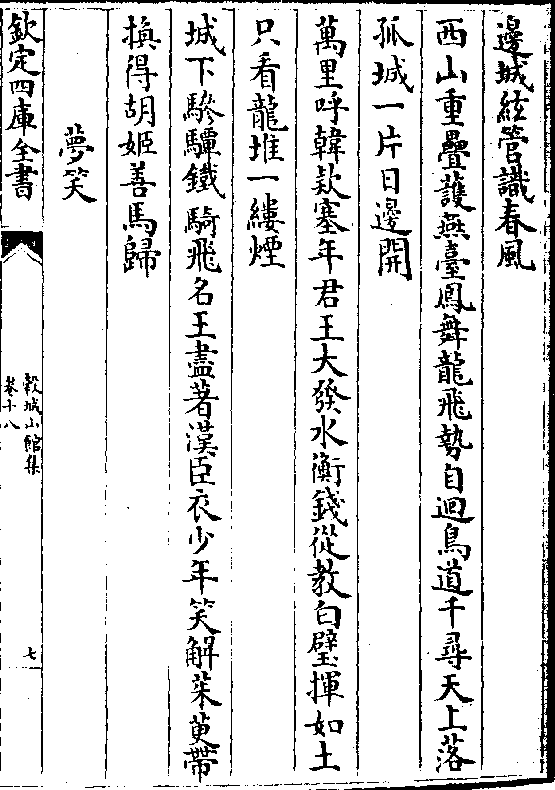 邊城絃管識春風
西山重疊護燕臺鳳舞龍飛勢自迴鳥道千尋天上落
孤城一片日邊開
萬里呼韓欵塞年君王大發水衡錢從教白璧揮如土
只看龍堆一縷煙
城下驂驔鐵騎飛名王盡著漢臣衣少年笑解茱萸帶
換得胡姬善馬歸
夢笑
欽定四庫全書
穀城山館集
卷十八
七